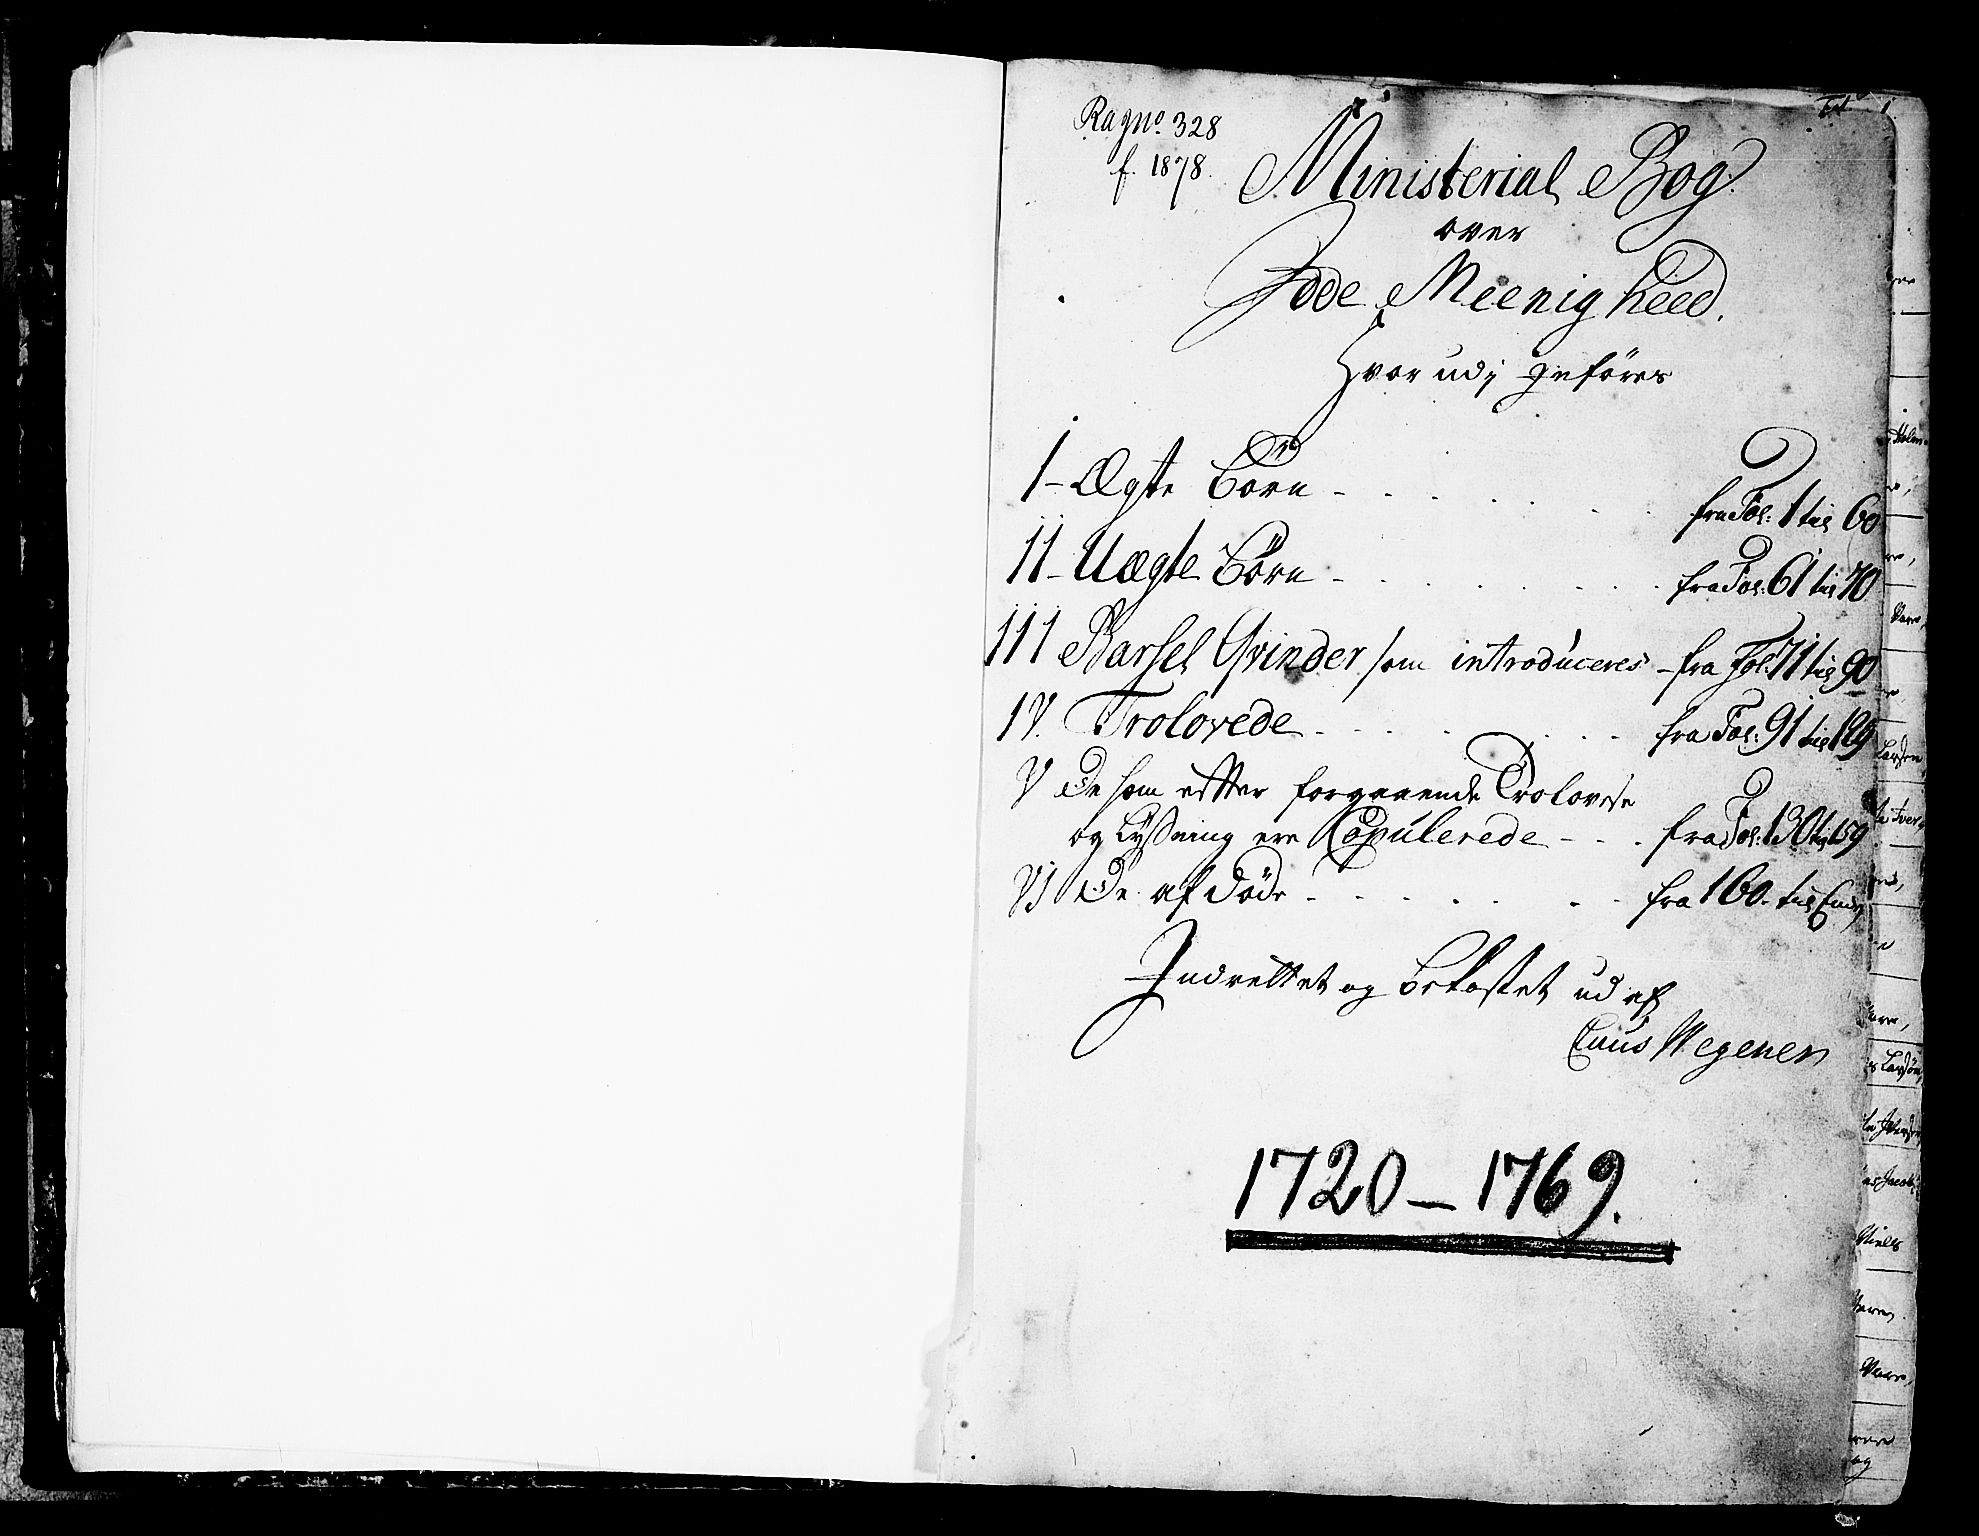 Ragno. 328
f. 1878.
Ministerial Bog
over
Fode Meenigheed.
Hvor udj Jnføres
I - Ægte Børn - fra Fol: 1 til 60
II - Uægte Børn - fra Fol: 61 til 70
III Barsel Qvinder som introduceres - fra Fol: 71 til 90
IV. Trolovede - fra Fol: 91 til 129
V De som efter forgaaende Trolovelse
og Lysning ere Copulerede - fra Fol: 130 til 159
VI De af døde - fra 160 til Ende
Indrettet og bekostet ud af
Claus Wegener
1720 - 1769.